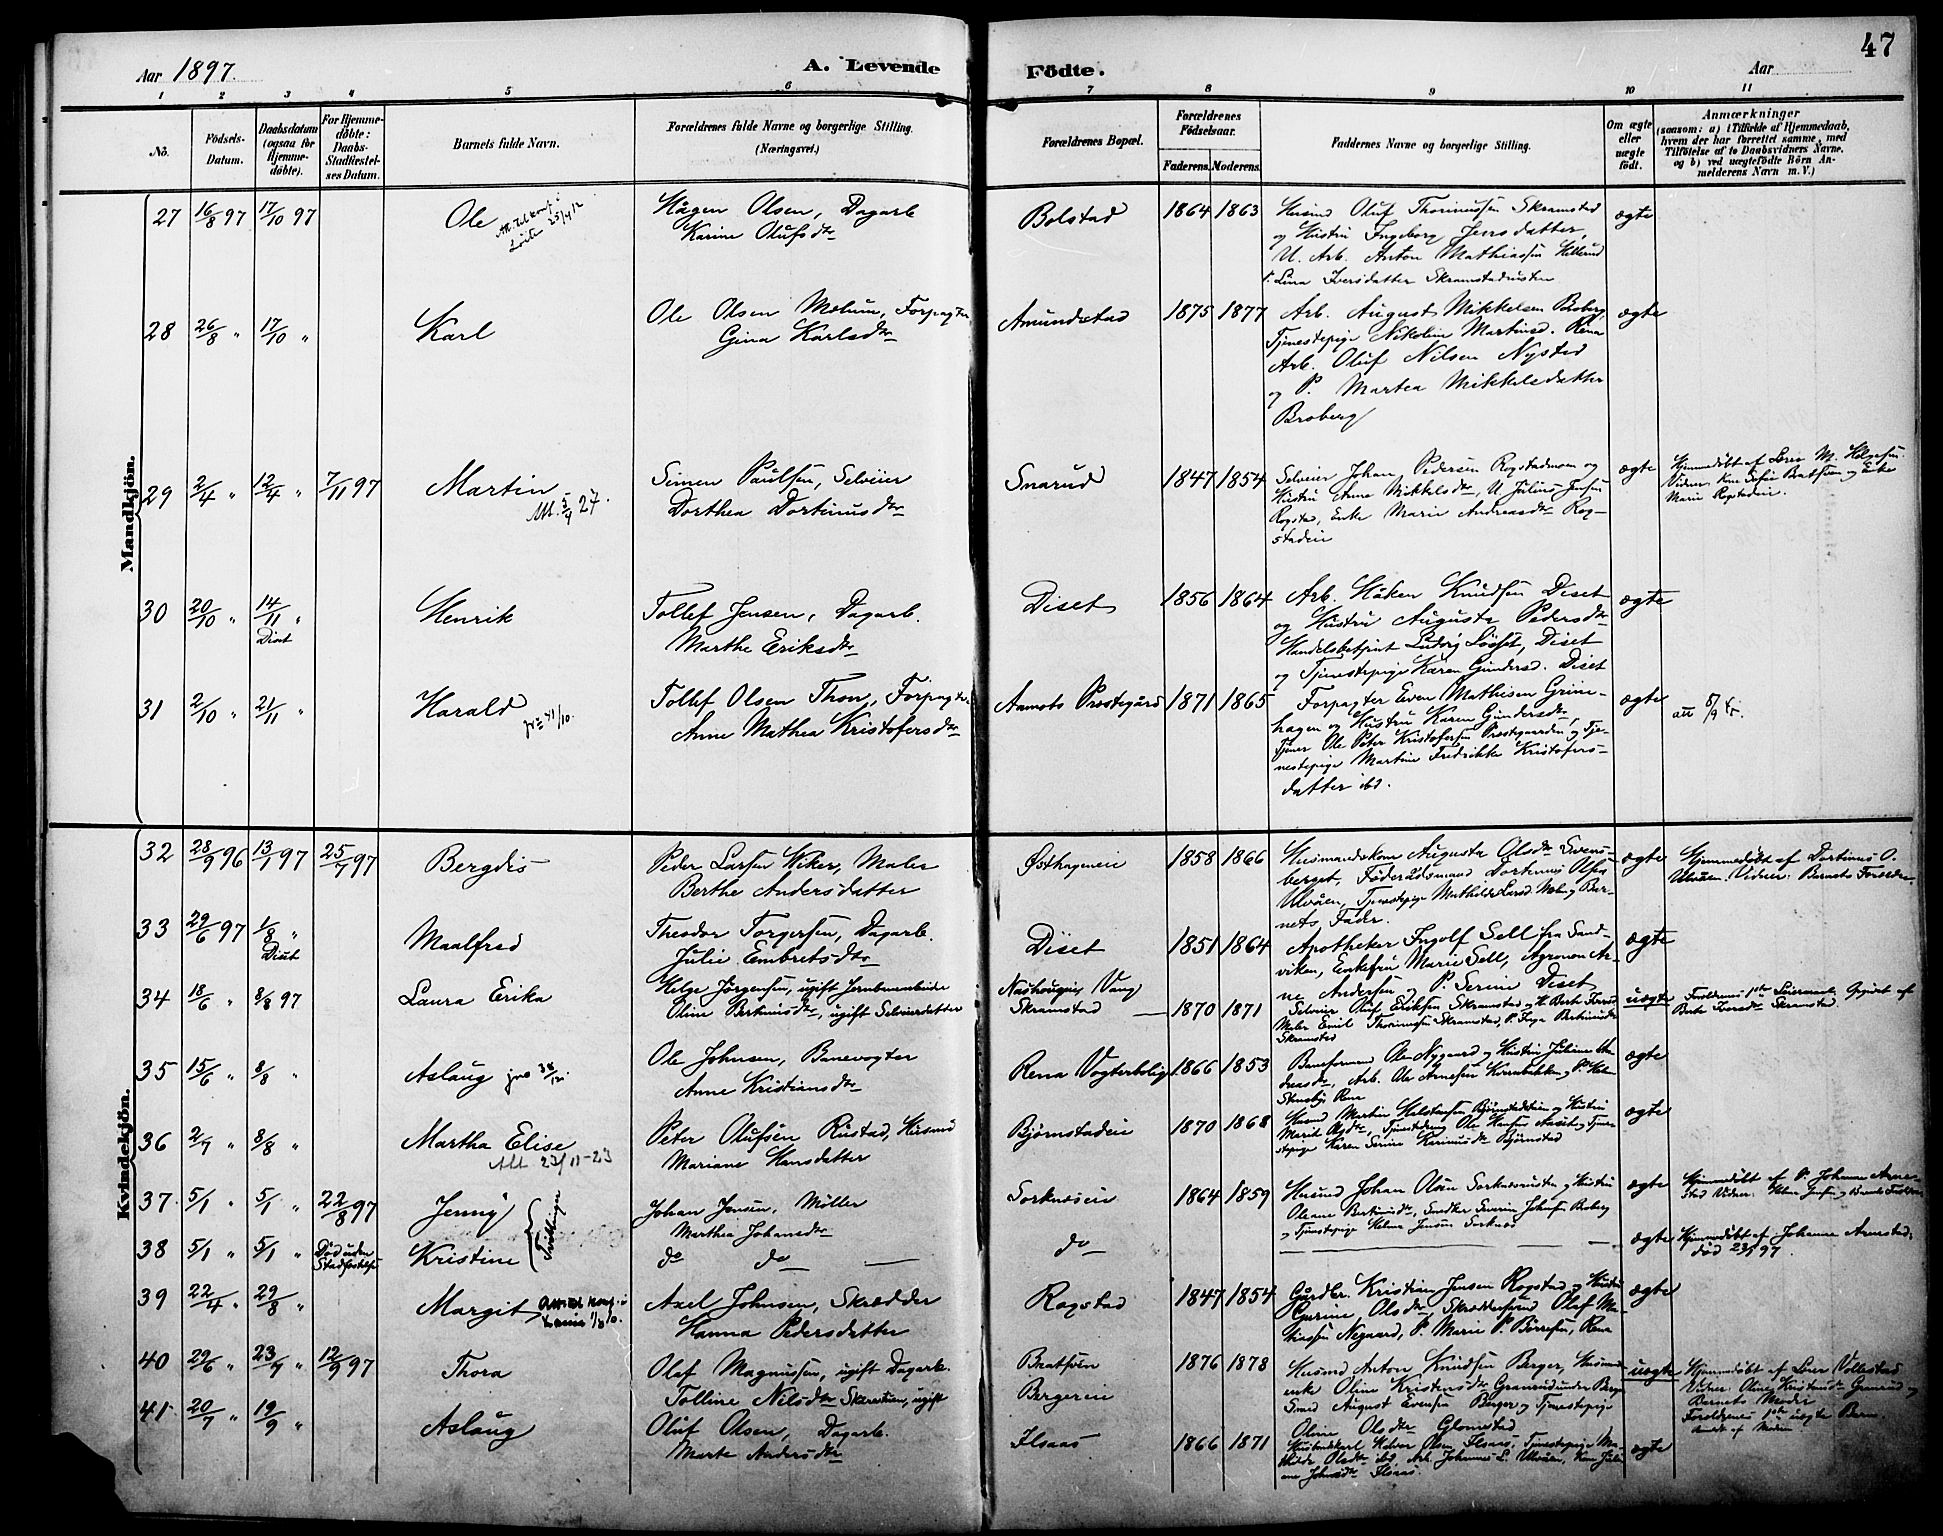 47
Aar 1897.
A. Levende Födte.
Aar
1 2 3 4 5 6 7 8 9 10 11
No.
Födsels-Datum.
Daabsdatum (ogsaa for Hjemme-döbte).
For Hjemme-döbte: Daabs-Stadfæstel-ses Datum.
Barnets fulde Navn.
Forældrenes fulde Navne og borgerlige Stilling. (Næringsvei.)
Forældrenes Bopæl.
Forældrenes Födselsaar.
Faderens. Moderens.
Faddernes Navne og borgerlige Stilling.
Om ægte eller uægte födt.
Anmærkninger
(saasom: a) i Tilfælde af Hjemmedaab,
hvem der har forrettet samme, med
Tilföielse af to Daabsvidners Navne,
og b) ved uægtefödte Börn An-
melderens Navn m. V.)
Mandkjön.
27 16/8 97 17/10 97 Ole
Hågen Olsen, Dagarb.
Karine Olufsdtr
Bolstad 1864 1863
Husmd Oluf Thorinussen Skramstad
og Hustru Ingeborg Jensdatter,
U. Arb. Anton Mathiassen Hillerud
P. Lina Iversdatter Skramstad
ægte
28 26/8 " 17/10 " Karl
Ole Olsen Mælum, Forpagter
Gina Karlsdtr
Amundstad 1875 1877
Arb. August Mikkelsen Broberg,
Tjenestepige Nikoline Martinsd. Rena
Arb. Oluf Nilsen Nysted
og P. Martea Mikkelsdatter
Broberg
ægte
29 2/4 " 12/4 " 7/11 97 Martin
Att. 5/4 27.
Simen Paulsen, Selveier
Dorthea Dortinusdtr
Snarud 1847 1854
Selveier Johan Pedersen Rogstadmoen og
Hustru Anne Mikkelsdtr, U. Julius Jensen
Rogstad, Enke Marie Andreasdtr Rog-
stadeie
ægte
Hjemmedöbt af Lærer M. Helgesen
Vidner: Kone Sofie Bratsveen og Enke
Marie Rogstadeie.
30 20/10 " 14/11 " Henrik
Diset
Tollef Jensen, Dagarb.
Marthe Eriksdtr
Diset 1856 1864
Arb. Håken Knudsen Diset
og Hustru Augusta Pedersdtr
Handelsbetjent Ludvig Løset, Diset
og Tjenestepige Karen Gundersd. Diset
ægte
31 2/10 " 21/11 " Harald
Tollef Olsen Thon, Forpagter
Anne Mathea Kristofersdtr
Aamots Præstegård 1871 1865
Forpagter Even Mathisen Grine-
hagen og Hustru Karen Gundersdtr,
Tjener Ole Peter Kristofersen Præstegaarden og Tje-
nestepige Martine Fredrikke Kristofers-
datter ibd.
ægte
Kvindekjön.
32 28/9 96 13/1 97 25/7 97 Bergdis
Peder Larsen Wiker, Maler
Berthe Andersdatter
Østhageneie 1858 1866
Husmandskone Augusta Olsdtr Svens-
berget, Föderådsmand Dortinus Olsen
Ulvåen, Tjenestepige Mathilde Larsd. Moln og Bar-
nets Fader.
ægte
Hjemmedöbt af Dortinus O.
Ulvåen. Vidner: Barnets Forældre.
33 29/6 97 1/8 " Maalfred
Diset
Theodor Torgersen, Dagarb.
Julie Embretsdtr
Diset 1851 1864
Apotheker Ingolf Sell fra Sand-
viken, Enkefru Marie Sell, Agronom Ar-
ne Andersen og P. Serine Diset
ægte
34 18/6 " 8/8 97 Laura Erika
Helge Jörgensen, ugift Jernbanearbeider
Oline Bertinusdtr, ugift Selveierdatter
Vang
Skramstad 1870 1871
Selveier Oluf Eriksen Skramstad og H. Berte Iversd
Maler Emil Thorinussen Skramstad, P. Inga Bertinusdtr
Skramstad
uægte
Forældrenes 1ste Leiermaal. Opgivet af
Berte Iversdtr Skramstad.
35 15/6 " 8/8 " Aslaug
Ole Johnsen, Banevogter
Anne Kristiansdtr
Rena Vogterbolig 1866 1853
Baneformand Ole Nygaard og Hustru Juliane An-
dreasdtr, Arb. Ole Arnesen Kvernbakken, P. Helen
Stensby Rena
ægte
36 2/7 " 8/8 " Martha Elise
Att 23/11-23
Peter Olufsen Rustad, Husmd
Mariane Hansdatter
Björnstadeie 1870 1868
Husmd Martin Halstensen Björnstadeie og Hustru
Marit Olsdtr, Tjenestedreng Ole Hansen Aaset og Tjene-
stepige Karen Serine Karinusdtr Björnstad
ægte
37 5/1 " 5/1 " 22/8 97 Jenny
Tvillinger
Johan Jensen, Möller
Marthea Johansdtr
Sorknæseie 1864 1859
Husmd Johan Olsen Sorknæs og Hustru
Oleane Bertinusdtr, Snedker Severin Johnsen Broberg
og Tjenestepige Helma Jensen Sorknæs
ægte
Hjemmedöbt af P. Johanne Arne-
stad Vidner: Helma Jensen og Barnets Forældre
38 5/1 " 5/1 " Död uden Stadfæstelse Kristine
do do
do
ægte
Hjemmedöbt af Johanne Arnestad,
död 23/1 97.
39 22/4 " 29/8 " Margit
Axel Johnsen, Skrædder
Hanna Pedersdatter
Rogstad 1847 1854
Gårdbr. Kristian Jensen Rogstad og Hustru
Gurine Olsdtr, Skræddersvend Olaf Ma-
thiassen Negaard, P. Marie P. Börresen, Rena
ægte
40 29/6 " 23/7 " 12/9 97 Thora
Olaf Magnussen, ugift Dagarb.
Tolline Nilsdtr, ugift
Bratsveen
Bergereie 1876 1878
Husmd Anton Knudsen Berger, Husmd-
enke Oline Kristensdtr Granrud under Berger
Smed August Evensen Berger og Tjenestepige
Oline Olsdtr Glomstad
uægte
Hjemmedöbt af Lærer Vollestad
Vidner: Oline Kristensdtr Granrud og
Barnets Moder
Forældrenes 1ste uægte Barn
41 20/7 " 19/9 " Aslaug
Oluf Olsen, Dagarb.
Marte Andersdtr
Ilsaas 1866 1871
Husmdskarl Halvor Olsen Ilsaas, Tjenestepige Ma-
thilde Olsdtr ibd, Arb. Johannes L. Ulvåen, Kone Juli-
ane Johnsdtr Ilsaas.
ægte